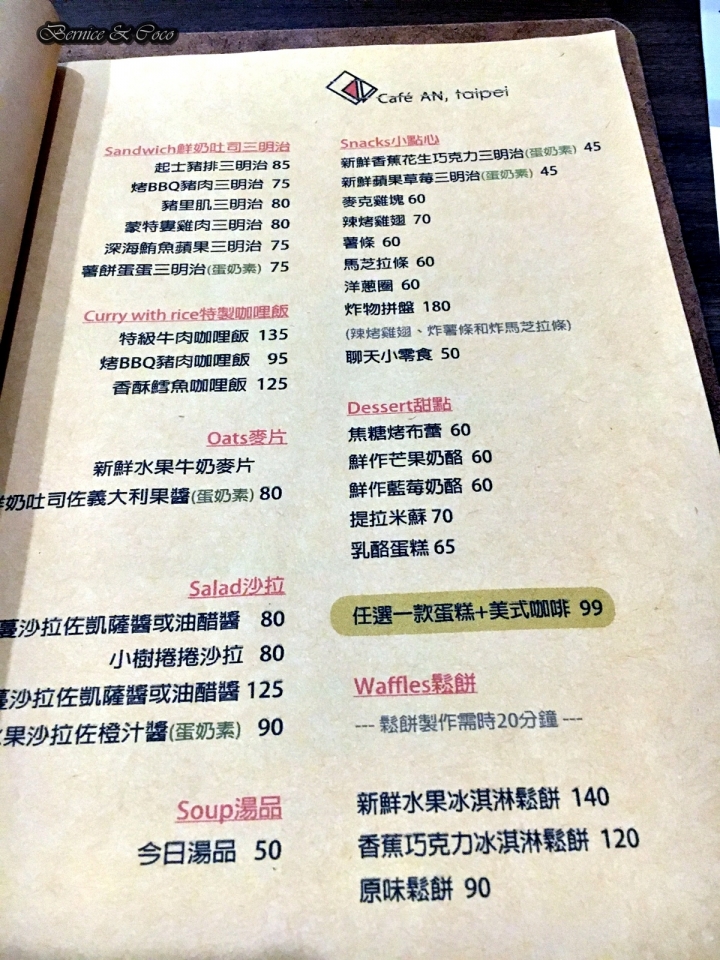 Bernice & Coco
Café AN, taipei
Sandwich鮮奶吐司三明治
起士豬排三明治 85
烤BBQ豬肉三明治 75
豬里肌三明治 80
蒙特婁雞肉三明治 80
深海鮪魚蘋果三明治 75
薯餅蛋蛋三明治(蛋奶素) 75
Curry with rice特製咖哩飯
特級牛肉咖哩飯 135
烤BBQ豬肉咖哩飯 95
香酥鱈魚咖哩飯 125
Oats麥片
新鮮水果牛奶麥片
奶吐司佐義大利果醬(蛋奶素) 80
Salad沙拉
蔓沙拉佐凱薩醬或油醋醬 80
小樹捲捲沙拉 80
蔓沙拉佐凱薩醬或油醋醬 125
果沙拉佐橙汁醬(蛋奶素) 90
Soup湯品
今日湯品 50
Snacks小點心
新鮮香蕉花生巧克力三明治(蛋奶素) 45
新鮮蘋果草莓三明治(蛋奶素) 45
麥克雞塊 60
辣烤雞翅 70
薯條 60
馬芝拉條 60
洋蔥圈 60
炸物拼盤 180
(辣烤雞翅、炸薯條和炸馬芝拉條)
聊天小零食 50
Dessert甜點
焦糖烤布蕾 60
鮮作芒果奶酪 60
鮮作藍莓奶酪 60
提拉米蘇 70
乳酪蛋糕 65
任選一款蛋糕+美式咖啡 99
Waffles鬆餅
--- 鬆餅製作需時20分鐘 ---
新鮮水果冰淇淋鬆餅 140
香蕉巧克力冰淇淋鬆餅 120
原味鬆餅 90